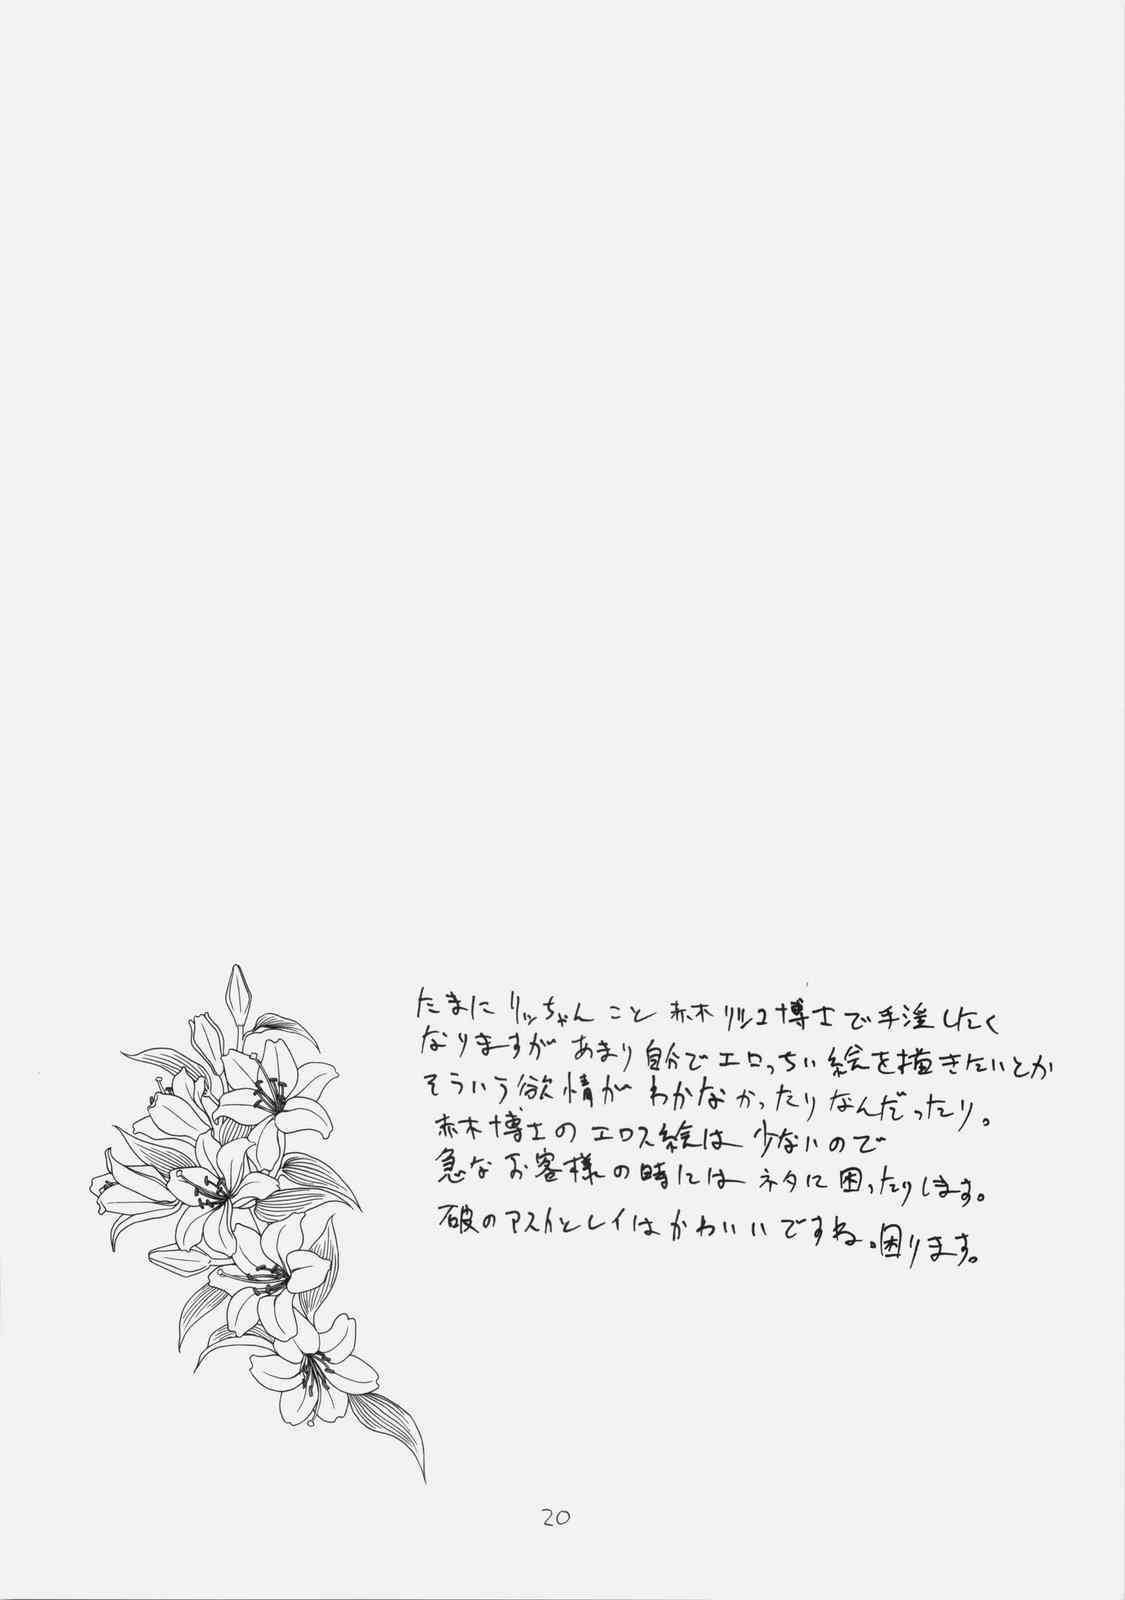 たまに リッちゃん こと 赤木リツコ博士で手淫したく
なりますが あまり自分でエロっちい絵を描きたいとか
そういう欲情が わかなかったりなんだったり。
赤木博士のエロス絵は 少ないので
急なお客様の時には ネタに困ったりします。
破のアスカとレイはかわいいですね。困ります。
20